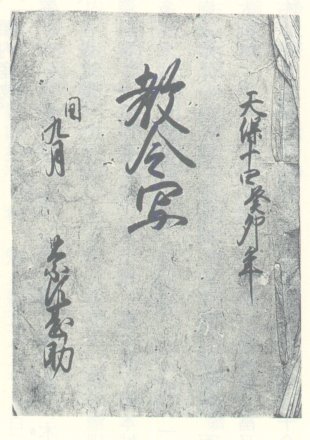 天保十四癸卯年
教令写
閏九月
助